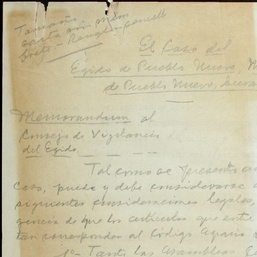 Tamaño
carta con un
El Caso del
Ejido de Pueblo Nuevo,
de Pueblo Nuevo,
Memorandum al
Consejo de Vigilancia
del Ejido
Tal como se presenta
caso, puede y debe considerarse
siguientes consideraciones legales,
gencia de que los artículos que
tan corresponden al Código Agrario
1o. Tanto las Asambleas